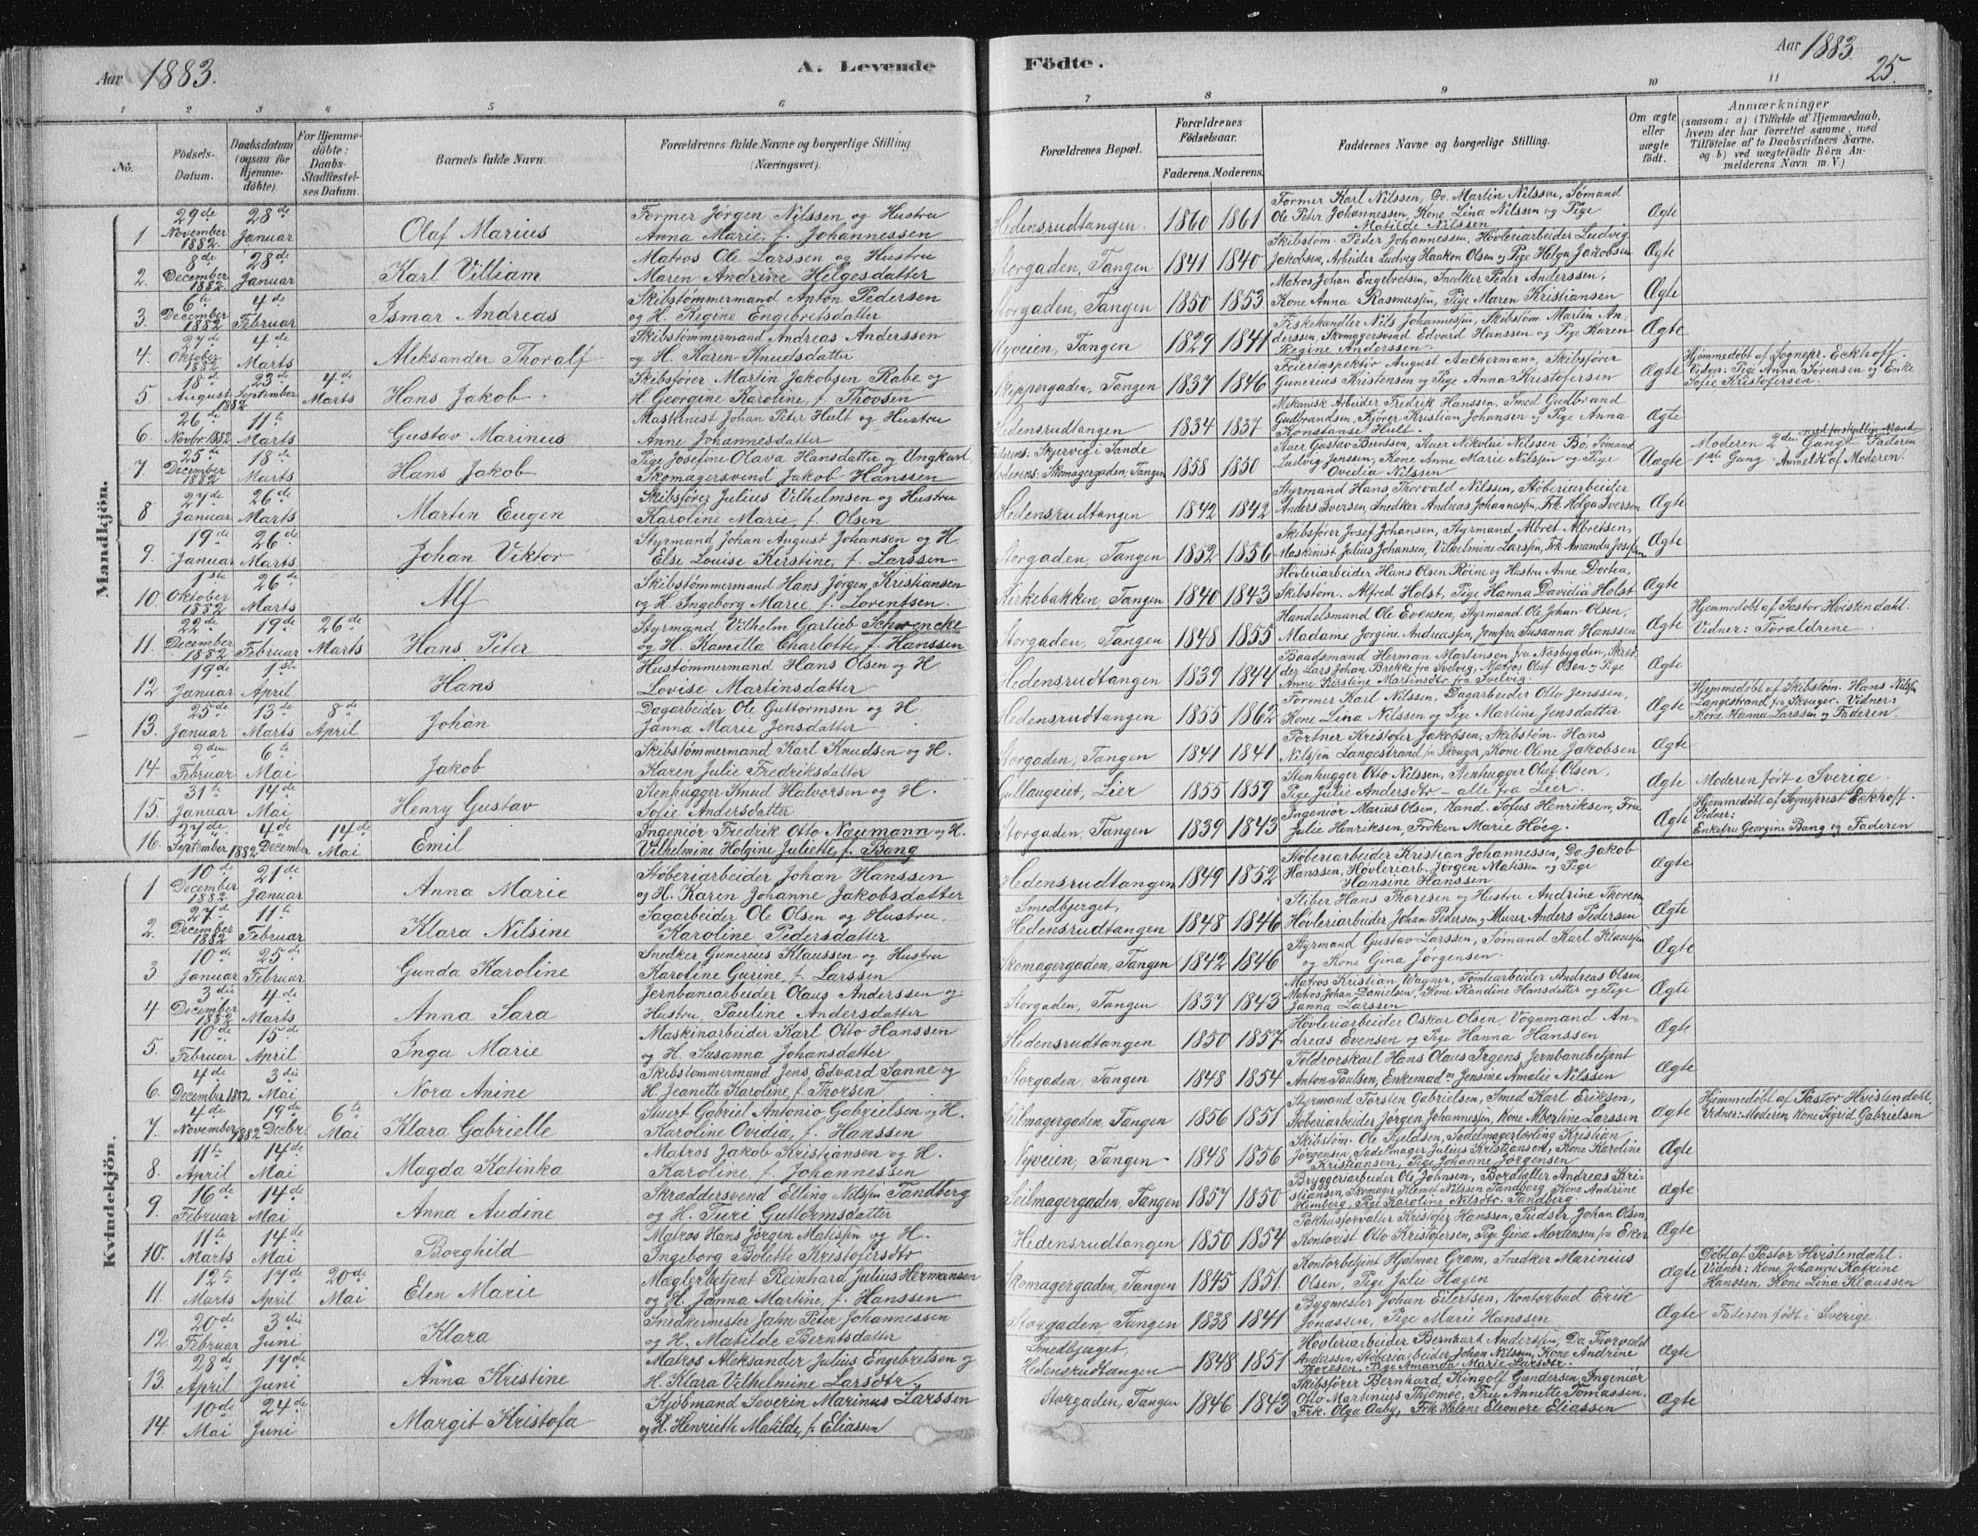 Aar 1883.
A. Levende
Födte.
Aar 1883.
25.
1 2 3 4 5 6 7 8 9 10 11
No.
Födsels-Datum.
Daabsdatum (ogsaa for Hjemme-döbte).
For Hjemme-döbte: Daabs-Stadfæstel-ses Datum.
Barnets fulde Navn.
Forældrenes fulde Navne og borgerlige Stilling (Næringsvei).
Forældrenes Bopæl.
Forældrenes Födselsaar.
Faderens. Moderens.
Faddernes Navne og borgerlige Stilling.
Om ægte eller uægte födt.
Anmærkninger (saasom: a) i Tilfælde af Hjemmedaab, hvem der har forrettet samme, med Tilföielse af to Daabsvidners Navne, og b) ved uægtefödte Börn An-melderens Navn m. V.)
Mandkjön.
1 29de November 1882 28de Januar Olaf Marius Former Jørgen Nilssen og Hustru Anna Marie, f. Johannessen Hedensrudtangen. 1860 1861 Former Karl Nilssen, Do. Martin Nilssen, Sømand Ole Peter Johannessen, Kone Lina Nilssen og Pige Matilde Nilssen Ægte
2. 8de December 1882 28de Januar Karl Villiam Matros Ole Larssen og Hustru Maren Andrine Helgesdatter Storgaden, Tangen 1841 1840 Skibstøm. Peder Johannessen, Høvleriarbeider Ludvig Jakobsen, Arbeider Ludvig Haakon Olsen og Pige Helga Jakobsen Ægte
3. 6te December 1882 4de Februar Ismar Andreas Skibstømmermand Anton Pedersen og H. Regine Engebretsdatter Storgaden, Tangen 1850 1853 Matros Johan Engebretsen, Snedker Peder Anderssen, Kone Anna Rasmussen, Pige Maren Kristiansen Ægte
4. 27de Oktober 1882 4de Marts Aleksander Thoralf Skibstømmermand Andreas Anderssen og H. Karen Knudsdatter Nyveien, Tangen 1829 1841 Fiskehandler Nils Johannesen, Skibstøm. Martin An-derssen, Skomagersvend Edvard Hanssen og Pige Karen Regine Anderssen Ægte
5 18de August 1882 23de September 4de Marts Hans Jakob. Skibsfører Martin Jakobsen Rabe og H. Georgine Karoline, f. Thovsen Skippergaden, Tangen 1837 1846 Feierinspektør August Aachermann, Skibsfører Gunerius Kristensen og Pige Anna Kristofersen Ægte Hjemmedøbt af Sognepr. Eckhoff. Vidner: Pige Anna Sørensen og Enke Sofie Kristofersen.
6. 26de Novbr. 1882 11te Marts Gustav Marinus Maskinest Johan Peter Hult og Hustru Anne Johannesdatter Hedensrudtangen 1834 1837 Mekanisk Arbeider Fredrik Hanssen, Smed Gudbrand Gudbrandsen, Kjører Kristian Johansen og Pige Anna Konstanse Hult. Ægte
7 25de December 1882 18de Marts Hans Jakob Pige Josefine Olava Hansdatter og Ungkarl Skomagersvend Jakob Hanssen Faderens: Skjervig i Sande Moderens: Skomagergaden, Tangen 1858 1850 Stuer Gustav Berntsen, Stuer Nikolai Nilssen Bo, Sømand Ludvig Jenssen, Kone Anne Marie Nilssen og Pige Ovedia Nilssen Uægte Moderen 2den Gang med forskjellig Mand Faderen 1ste Gang. Anmeldt af Moderen.
8 27de Januar 26de Marts Martin Eugen Skibsfører Julius Vilhelmsen og Hustru Karoline Marie, f. Olsen Hedensrudtangen 1842 1842 Styrmand Hans Thorvald Nilssen, Støberiarbeider Anders Iversen, Snedker Andreas Johannesen, Frk. Helga Iversen Ægte
9. 19de Januar 26de Marts Johan Viktor Styrmand Johan August Johansen og H. Else Louise Kirstine, f. Larssen Storgaden, Tangen 1852 1856 Skibsfører Josef Johansen, Styrmand Albret Albretsen, Maskinist Julius Johansen, Vilhelmine Larssen, Frk. Amanda Josefsen Ægte
10. 1ste Oktober 1882 26de Marts Alf Skibstømmermand Hans Jørgen Kristiansen og H. Ingeborg Marie, f. Lorentsen. Kirkebakken, Tangen 1840 1843 Høvleriarbeider Hans Olsen Røine og Hustru Anne Dortea, Skibstøm. Alfred Holst, Pige Hanna Davidia Holst Ægte
11. 22de December 1882 19de Februar 26de Marts Hans Peter Styrmand Vilhelm Garlieb Schwencke og H. Kamilla Charlotte, f. Hanssen Storgaden, Tangen 1848 1855 Handelsmand Ole Evensen, Styrmand Ole Johan Olsen, Madame Jørgine Andreassen, Jomfru Susanna Hanssen Ægte Hjemmedøbt af Pastor Hvistendahl. Vidner: Forældrene.
12 19de Januar 1ste April Hans Hustømmermand Hans Olsen og H. Lovise Martinsdatter Hedensrudtangen 1839 1844 Baadsmand Herman Martinsen fra Nøsbygden, Skræ-der Lars Johan Brekke fra Svelvig, Matros Oluf Olsen og Pige Anne Kirstine Martinsdtr. fra Svelvig. Ægte
13. 25de Januar 13de Marts 8de April Johan Dagarbeider Ole Guttormsen og H. Janna Marie Jensdatter Hedensrudtangen 1855 1862 Former Karl Nilssen, Dagarbeider Otto Jenssen, Kone Lina Nilssen og Pige Martine Jensdatter Ægte Hjemmedøbt af Skibstøm. Hans Nilsen Langestrand fra Skouger. Vidner: Kone Hanna Larssen og Faderen
14. 2den Februar 6te Mai Jakob Skibstømmermand Karl Knudsen og H. Karen Julie Fredriksdatter Storgaden, Tangen 1841 1841 Portner Kristofer Jakobsen, Skibstøm. Hans Nilssen Langestrand fra Skouger, Kone Oline Jakobsen Ægte
15. 31te Januar 14de Mai Henry Gustav Stenhugger Knud Halvorsen og H. Sofie Andersdatter Gullaugeiet, Lier 1855 1859 Stenhugger Otto Nilssen, Stenhugger Oluf Olsen, Pige Julie Andersdtr - alle fra Lier. Ægte Moderen født i Sverige.
16. 27de September 1882 4de December 14de Mai Emil Ingeniør Fredrik Otto Naumann og H. Vilhelmine Helgine Juliette, f. Bang Storgaden, Tangen 1839 1843 Ingeniør Marius Olsen, Kand. Tofus Henriksen, Fru Julie Henriksen, Frøken Marie Høeg. Ægte Hjemmedøbt af Sogneprest Eckhoff. Vidner: Enkefru Georgine Bang og Faderen
Kvindekjön.
1 10de December 1882 21de Januar Anna Marie Støberiarbeider Johan Hanssen og H. Karen Johanne Jakobsdatter Hedensrudtangen 1849 1852 Støberiarbeider Kristian Johannessen, Do Jakob Hanssen, Høvleriarb. Jørgen Matissen og Pige Hansine Hanssen Ægte
2. 27de December 1882 11te Februar Klara Nilsine Sagarbeider Ole Olsen og Hustru Karoline Pedersdatter Smedbjerget, Hedensrudtangen 1848 1846 Sliber Hans Thoresen og Hustru Andrine Thoresen Høvleriarbeider Johan Pedersen og Murer Anders Pedersen Ægte
3 10de Januar 25de Februar Gunda Karoline Snedker Gunerius Klaussen og Hustru Karoline Gurine, f. Larssen Skomagergaden, Tangen 1842 1846 Styrmand Gustav Larssen, Sømand Karl Klaussen og Kone Gina Jørgensen Ægte
4 3die December 1882 4de Marts Anna Sara Jernbanearbeider Olaus Anderssen og Hustru Pauline Andersdatter Storgaden, Tangen 1837 1843 Matros Kristian Wagner, Tomtearbeider Andreas Olsen, Matros Johan Danielsen, Kone Randine Hansdatter og Pige Janna Larssen Ægte
5. 10de Februar 15de April Inga Marie Maskinarbeider Karl Otto Hanssen og H. Susanna Johansdatter Hedensrudtangen 1850 1857 Høvleriarbeider Oskar Olsen, Vognmand An-dreas Evensen og Pige Hanna Hanssen Ægte
6. 4de December 1882 3die Mai Nora Anine Skibstømmermand Jens Edvard Sanne og H. Jeanette Karoline, f. Thorsen Storgaden, Tangen 1848 1854 Toldrorskarl Hans Olaus Irgens, Jernbanebetjent Anton Paulsen, Enkemadm Jensine Amalie Nilssen Ægte
7. 4de November 1882 19de Decbr. 6te Mai Klara Gabrielle Stuert Gabriel Antonio Gabrielsen og H. Karoline Ovidia, f. Hanssen Seilmagergaden, Tangen 1856 1851 Styrmand Torsten Gabrielsen, Smed Karl Eriksen, Støberiarbeider Jørgen Johannesen, Kone Albertine Larssen Ægte Hjemmedøbt af Pastor Hvistendahl. Vidner: Moderen, Kone Sigrid Gabrielsen
8. 11te April 14de Mai Magda Katinka Matros Jakob Kristiansen og H. Karoline, f. Johannessen Nyveien, Tangen. 1848 1856 Skibstøm. Ole Kjeldsen, Sadelmagerlærling Kristian Jørgensen, Sadelmager Julius Kristiansen, Kone Karoline Kristiansen, Pige Johanne Jørgensen Ægte
9. 16de Februar 14de Mai Anna Audine Skræddersvend Elling Nilssen Tandberg og H. Turi Guttormsdatter Seilmagergaden, Tangen 1857 1850 Bryggeriarbeider Ole Johnsen, Bordtatter Andreas Kri-stiansen, Skomager Klemet Nilssen Tandberg, Kone Andrine Hemberg, Pige Karoline Nilsdtr. Tandberg. Ægte
10. 11te Marts 14de Mai Borghild Matros Hans Jørgen Matissen og H. Ingeborg Bolette Kristofersdtr Hedensrudtangen 1850 1854 Pakhusforvalter Kristofer Hanssen, Predstr. Johan Olsen, Kontorist Otto Kristofersen, Pige Gina Mortensen fra Eker Ægte
11. 12te Marts 17de April 20de Mai Elen Marie Mæglerbetjent Reinhard Julius Hermansen og H. Janna Martine, f. Hanssen Skomagergaden, Tangen 1845 1851. Kontorbetjent Hjalmar Gram, Snedker Marinius Olsen, Pige Julie Hagen Ægte Døbt af Pastor Hvistendahl. Vidner: Kone Johanne Katrine Hanssen, Kone Lina Klaussen
12. 20de Februar 3die Juni Klara Snedkermester Jahn Peter Johannessen og H. Matilde Berntsdatter Storgaden, Tangen 1838 1841 Bygmester Johan Eilertsen, Kontorbud Erik Jonassen, Pige Marie Hanssen Ægte Faderen født i Sverige
13. 28de April 17de Juni Anna Kristine Matros Aleksander Julius Engebretsen og H. Klara Vilhelmine Larsdtr. Smedbjerget, Hedensrudtangen 1848 1851 Høvleriarbeider Bernhart Anderssen, Do Thorvald Anderssen, Støberiarbeider Johan Nilssen, Kone Andrine Thoresen, Pige Amanda Marie Larsdtr. Ægte
14. 10de Mai 24de Juni Margit Kristofa Kjøbmand Severin Marinus Larssen og H. Henriette Matilde, f. Eliassen Storgaden, Tangen 1846 1843 Skibsfører Bernhard, Ringolf Gundersen, Ingeniør Otto Martinius Thjømøe, Fru Annette Tomassen, Frk. Olga Aaby, Frk Helene Eleonore Eliassen Ægte